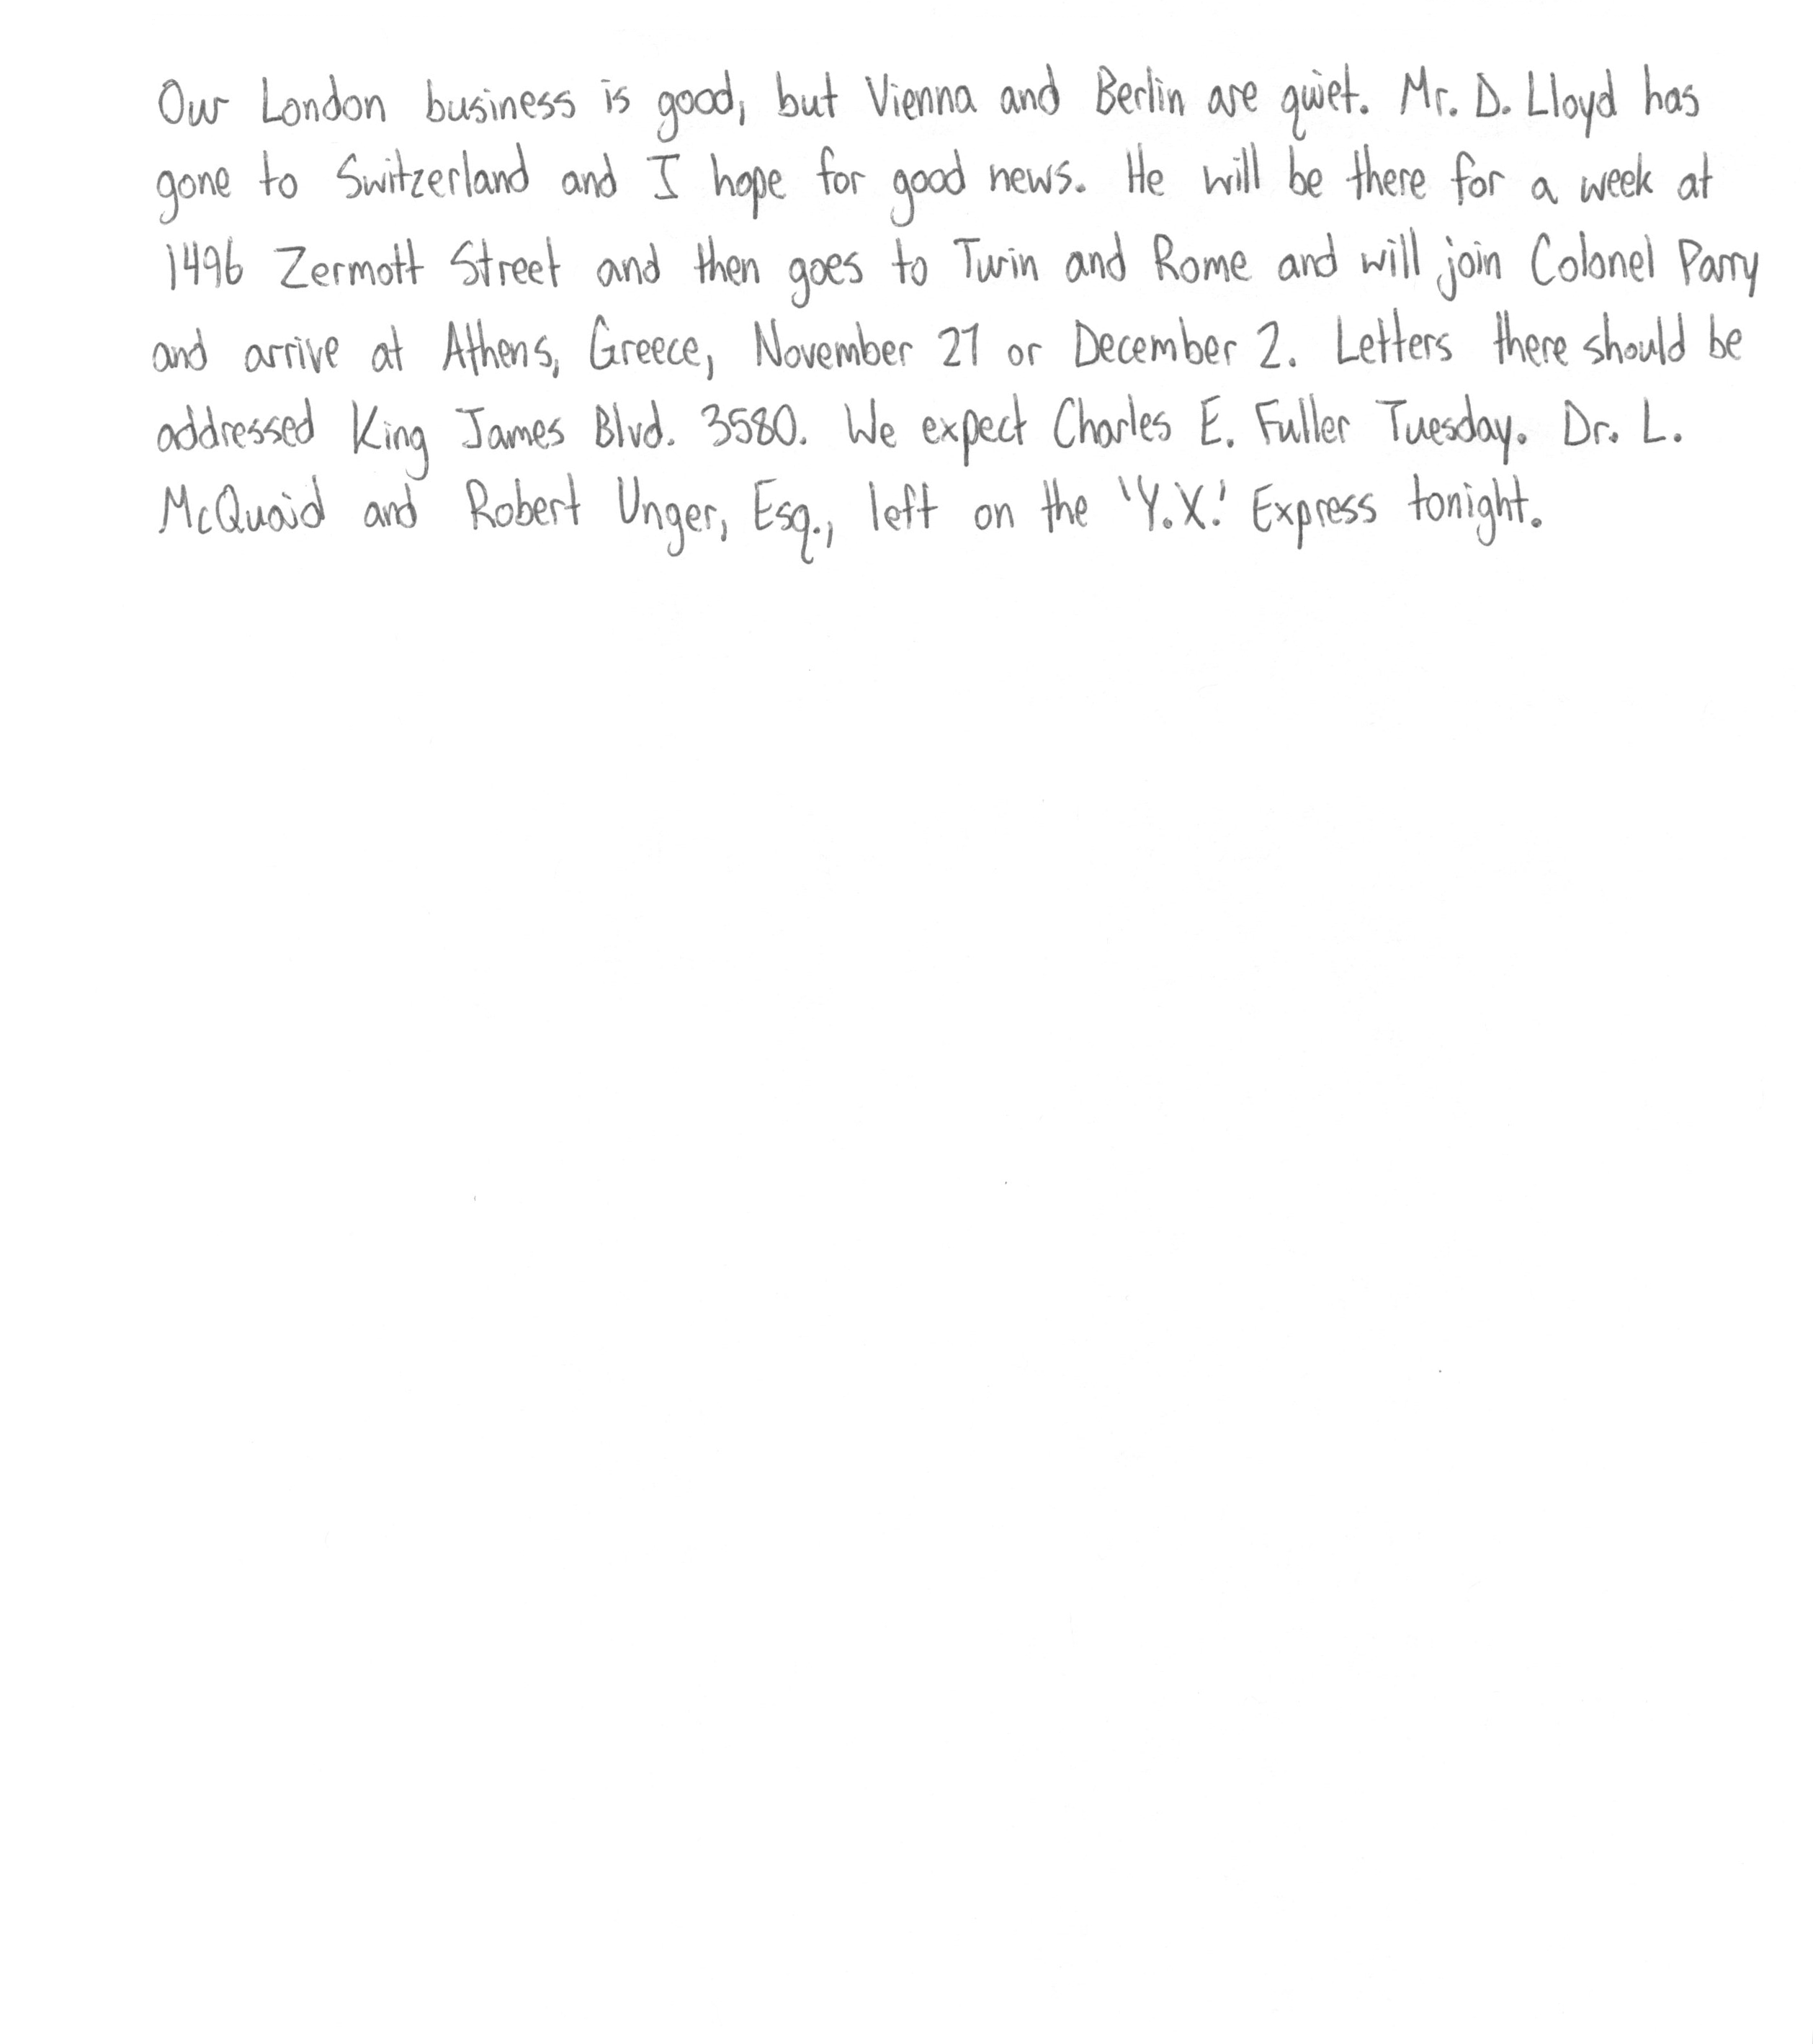 Our London business is good, but Vienna and Berlin are quiet. Mr. D. Lloyd has
gone to Switzerland and I hope for good news. He will be there for a week at
1496 Zermott Street and then goes to Turin and Rome and will join Colonel Parry
and arrive at Athens, Greece, November 27 or December 2. Letters there should be
addressed King James Blvd. 3580. We expect Charles E. Fuller Tuesday. Dr. L.
McQuaid and Robert Unger, Esq., left on the 'Y.X.' Express tonight.